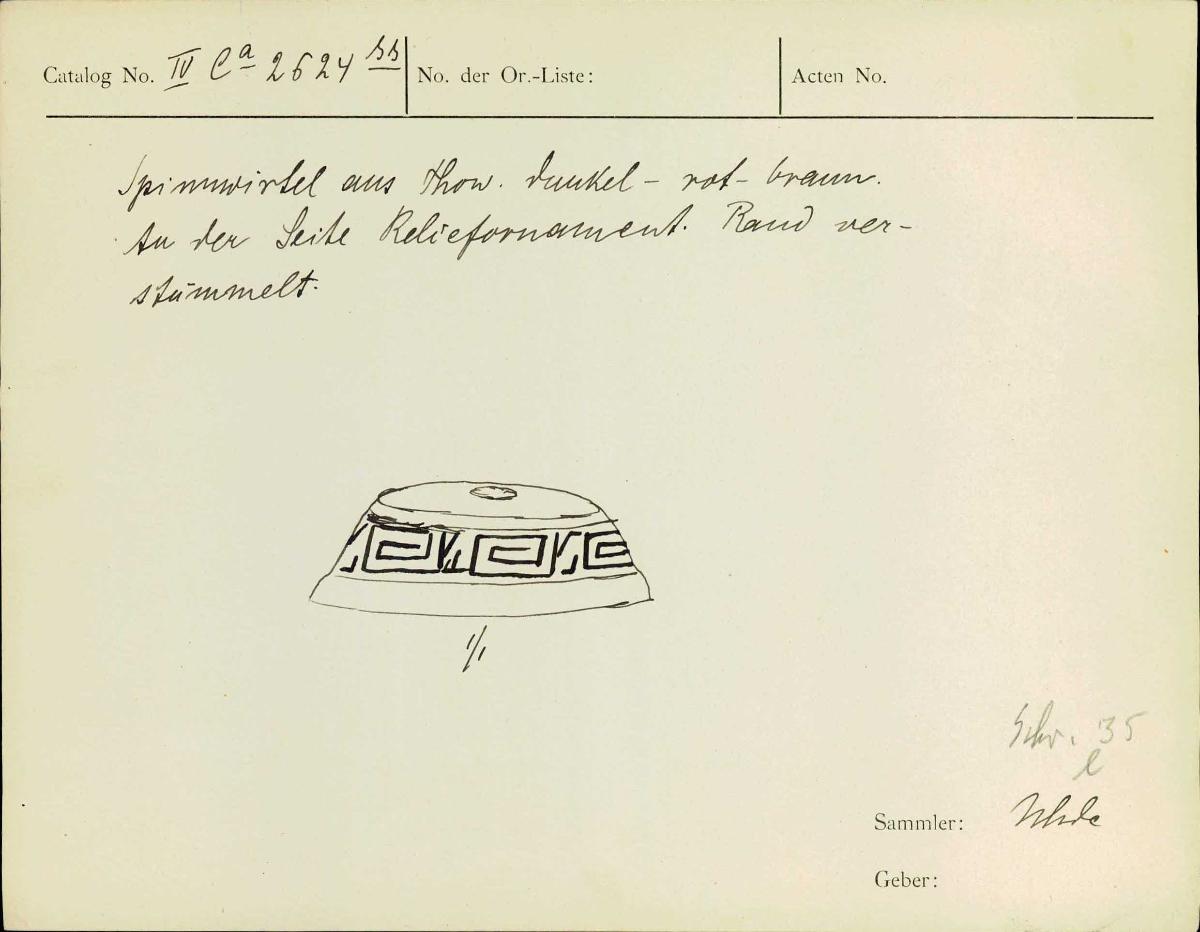 Catalog No. IV Ca 2624 ss No. der Or.-Liste: Acten No.
Spinnwirtel aus Thon. dunkel-rot-braun.
An der Seite Reliefornament. Rand ver-
stümmelt.
1/1
Schr. 35
l
Sammler: Uhde
Geber: